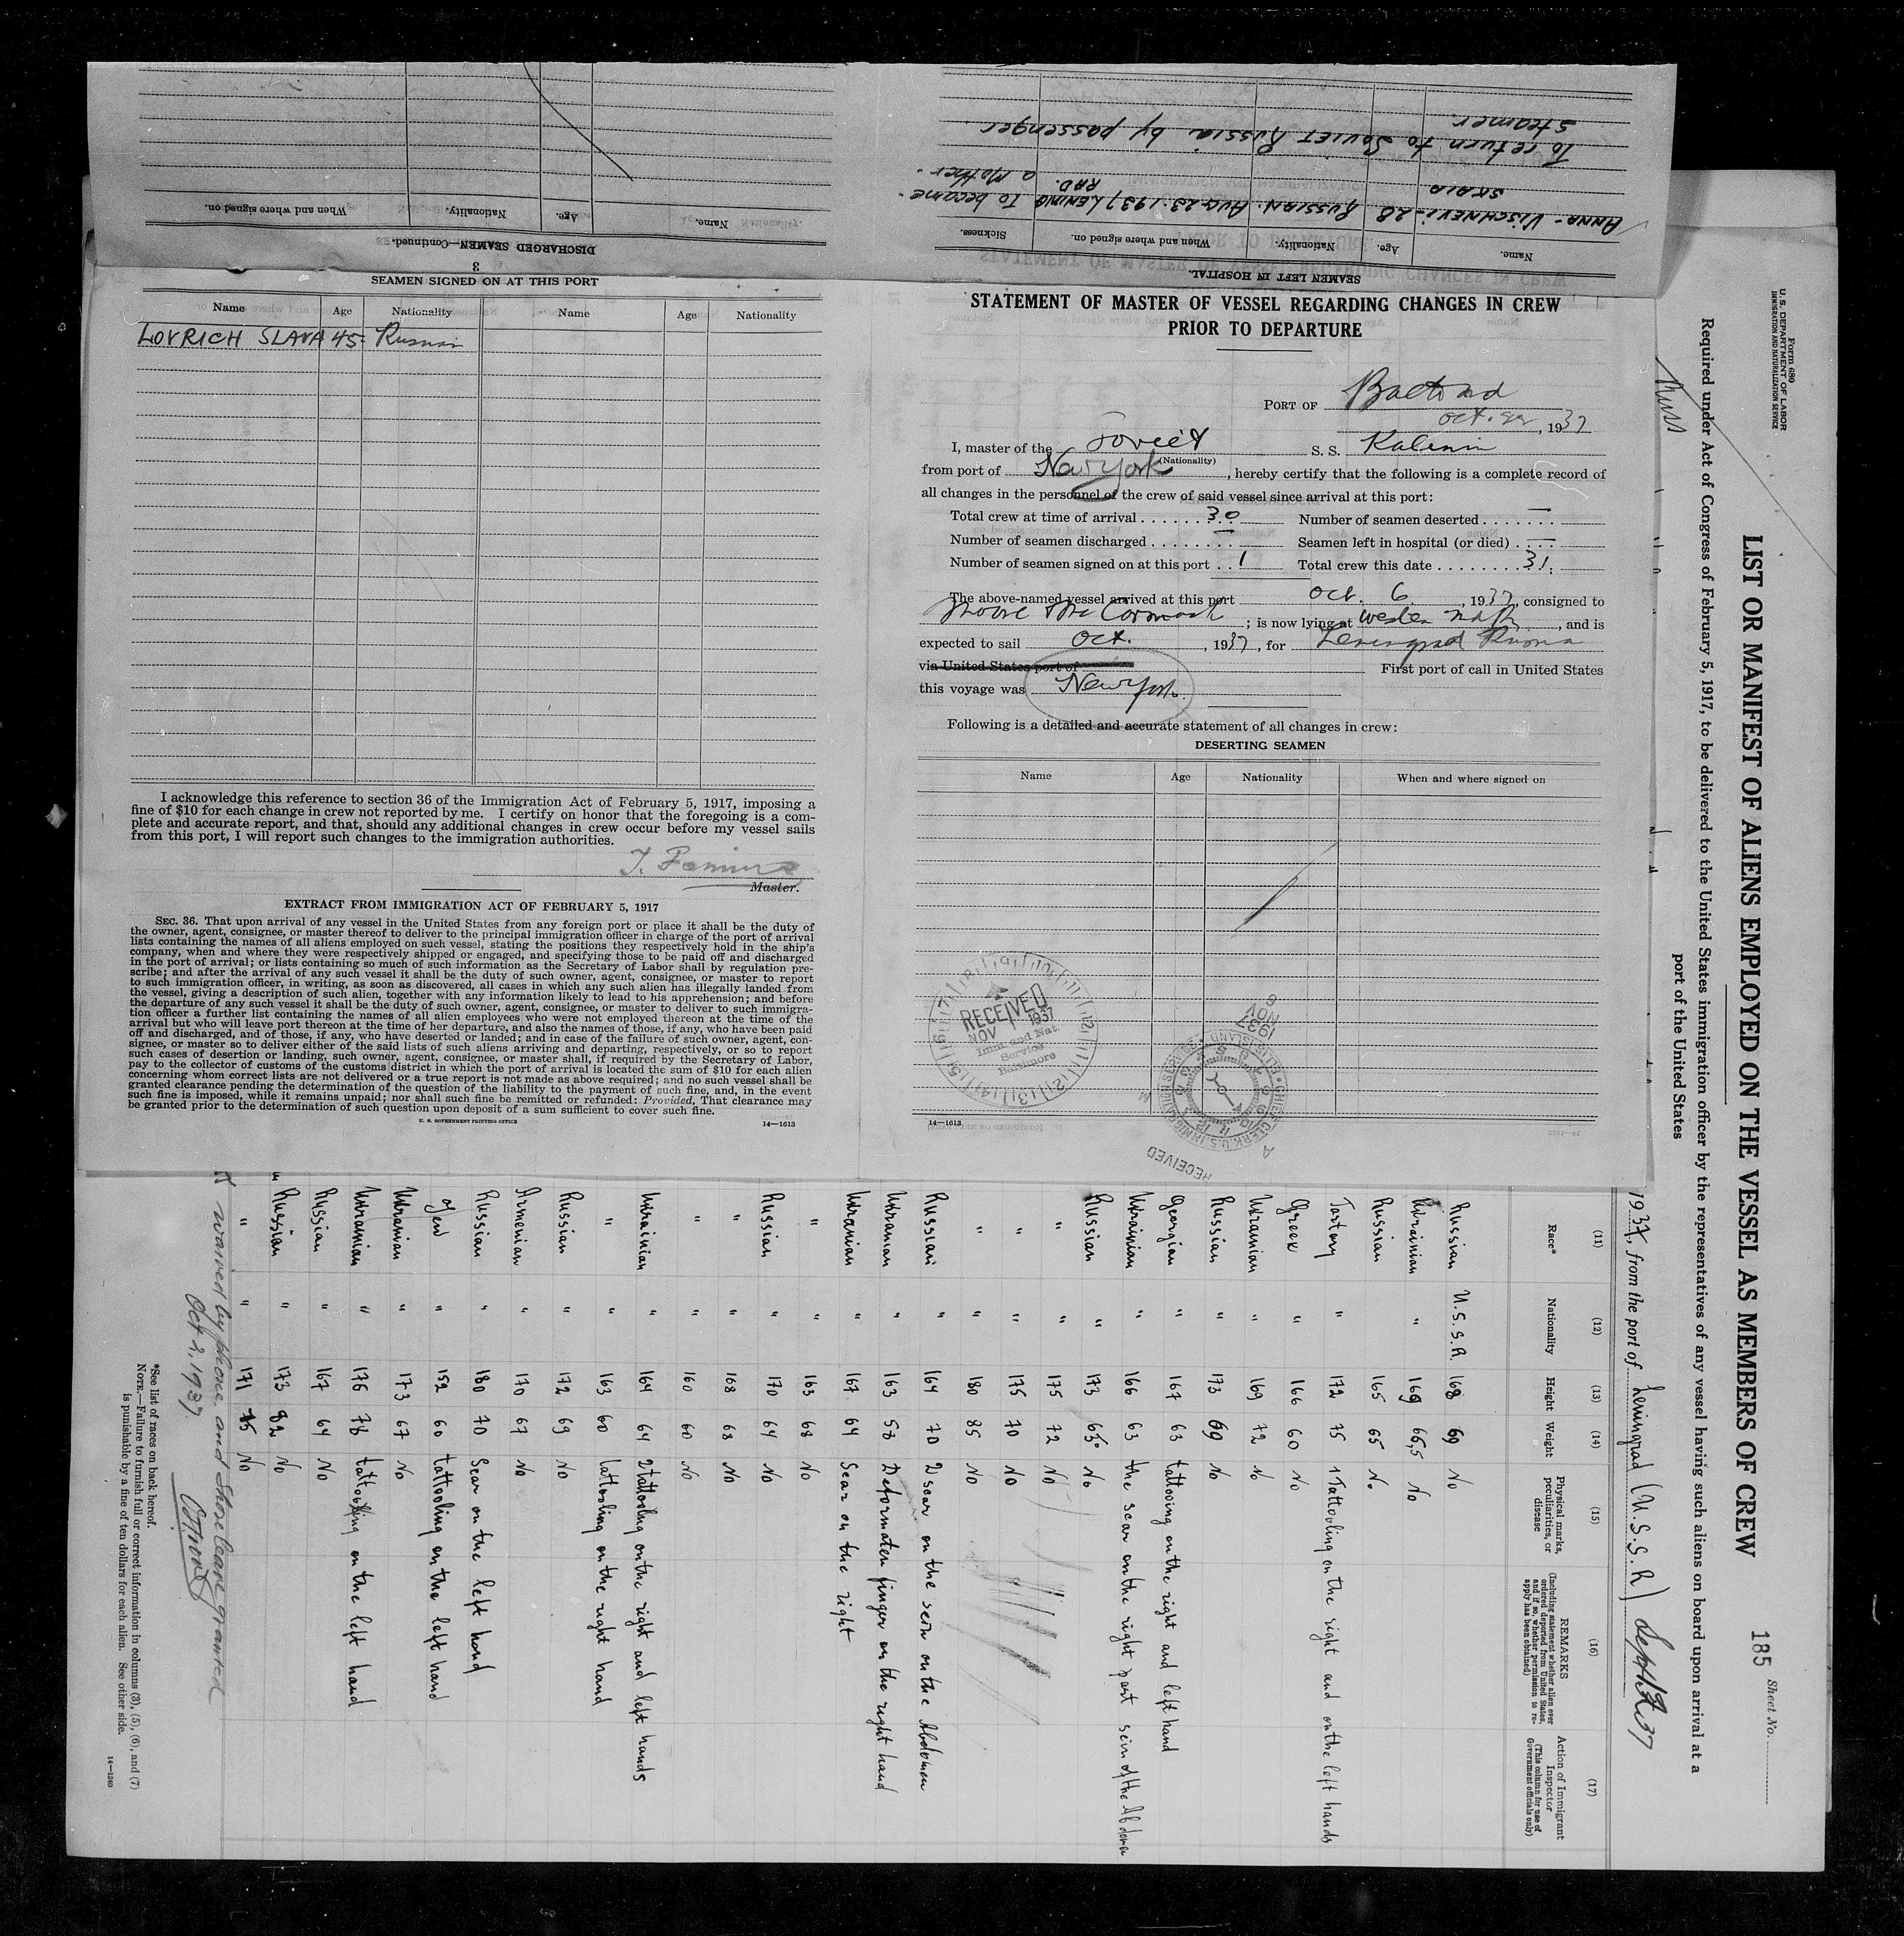 Name. Age. Nationality. When and where signed on.
DISCHARGED SEAMEN—Continued.
3
SEAMEN LEFT IN HOSPITAL.
Name. Age. Nationality. When and where signed on. Sickness.
ANNA - VISCHNEVI- 28 RUSSIAN. AUG-23-1937 LENING To become
SKAIA RAD. a Mother.
To return to Soviet Russia by passenger
steamer.
SEAMEN SIGNED ON AT THIS PORT
Name Age Nationality Name Age Nationality
LOVRICH SLAVA 45- Russian
I acknowledge this reference to section 36 of the Immigration Act of February 5, 1917, imposing a
fine of $10 for each change in crew not reported by me. I certify on honor that the foregoing is a com-
plete and accurate report, and that, should any additional changes in crew occur before my vessel sails
from this port, I will report such changes to the immigration authorities.
Master.
EXTRACT FROM IMMIGRATION ACT OF FEBRUARY 5, 1917
SEC. 36. That upon arrival of any vessel in the United States from any foreign port or place it shall be the duty of
the owner, agent, consignee, or master thereof to deliver to the principal immigration officer in charge of the port of arrival
lists containing the names of all aliens employed on such vessel, stating the positions they respectively hold in the ship's
company, when and where they were respectively shipped or engaged, and specifying those to be paid off and discharged
in the port of arrival; or lists containing so much of such information as the Secretary of Labor shall by regulation pre-
scribe; and after the arrival of any such vessel it shall be the duty of such owner, agent, consignee, or master to report
to such immigration officer, in writing, as soon as discovered, all cases in which any such alien has illegally landed from
the vessel, giving a description of such alien, together with any information likely to lead to his apprehension; and before
the departure of any such vessel it shall be the duty of such owner, agent, consignee, or master to deliver to such immigra-
tion officer a further list containing the names of all alien employees who were not employed thereon at the time of the
arrival but who will leave port thereon at the time of her departure, and also the names of those, if any, who have been paid
off and discharged, and of those, if any, who have deserted or landed; and in case of the failure of such owner, agent, con-
signee, or master so to deliver either of the said lists of such aliens arriving and departing, respectively, or so to report
such cases of desertion or landing, such owner, agent, consignee, or master shall, if required by the Secretary of Labor,
pay to the collector of customs of the customs district in which the port of arrival is located the sum of $10 for each alien
concerning whom correct lists are not delivered or a true report is not made as above required; and no such vessel shall be
granted clearance pending the determination of the question of the liability to the payment of such fine, and, in the event
such fine is imposed, while it remains unpaid; nor shall such fine be remitted or refunded: Provided, That clearance may
be granted prior to the determination of such question upon deposit of a sum sufficient to cover such fine.
U. S. GOVERNMENT PRINTING OFFICE 14—1613
STATEMENT OF MASTER OF VESSEL REGARDING CHANGES IN CREW
PRIOR TO DEPARTURE
PORT OF
Oct. , 1937
I, master of the Soviet S. S. Kalinin
(Nationality)
from port of New York, hereby certify that the following is a complete record of
all changes in the personnel of the crew of said vessel since arrival at this port:
Total crew at time of arrival 30 Number of seamen deserted —
Number of seamen discharged — Seamen left in hospital (or died) —
Number of seamen signed on at this port 1 Total crew this date 31.
The above-named vessel arrived at this port Oct. 6, 1937, consigned to
Moore McCormack; is now lying at, and is
expected to sail Oct., 1937, for Leningrad Russia
via United States port of First port of call in United States
this voyage was New York.
Following is a detailed and accurate statement of all changes in crew:
DESERTING SEAMEN
Name Age Nationality When and where signed on
RECEIVED
NOV 1937
Immi and Nat.
Service
Baltimore
1937
NOV
6
RECEIVED
14—1613
Form 680
U. S. DEPARTMENT OF LABOR
IMMIGRATION AND NATURALIZATION SERVICE
Russ
Sheet No.
185
LIST OR MANIFEST OF ALIENS EMPLOYED ON THE VESSEL AS MEMBERS OF CREW
Required under Act of Congress of February 5, 1917, to be delivered to the United States immigration officer by the representatives of any vessel having such aliens on board upon arrival at a
port of the United States
1937, from the port of Leningrad (U.S.S.R)
(11) (12) (13) (14) (15) (16) (17)
Race* Nationality Height Weight Physical marks, peculiarities, or disease REMARKS (Including statement whether alien ever ordered deported from United States, and if so, whether permission to re-apply has been obtained) Action of Immigrant Inspector (This column for use of Government officials only)
Russian U.S.S.R. 168 69 No
Ukrainian " 169 66,5 No
Russian 165 65 No
Tartary " 172 75 1 Tattooling on the right and on the left hands
Greek " 166 60 No
Ukranian " 169 72 No
Russian " 173 69 No
Georgian " 167 63 tattooing on the right and left hand
Ukrainian " 166 63 the scar on the right part sein of the Abdomen
Russian " 173 65 No
" " 175 72 No
" " 175 70 No
" " 180 85 No
Russian " 164 70 2 scar on the sein on the Abdomen
Ukranian " 163 58 Deformaten finger on the right hand
Ukranian " 167 64 Scar on the right
" " 163 68 No
Russian " 170 64 No
" " 168 68 No
" " 160 60 No
Ukrainian " 164 64 2 tattooling on the right and left hands
" " 163 60 tattooling on the right hand
Russian " 172 69 No
Armenian " 170 67 No
Russian " 180 70 Scar on the left hand
Jew " 152 60 tattooling on the left hand
Ukranian " 173 67 No
Ukranian " 176 78 tattooling on the left hand
Russian " 167 64 No
Russian " 173 82 No
" " 171 75 No
waived by phone and shore leave granted
Oct 2, 1937
*See list of races on back hereof.
NOTE.—Failure to furnish full or correct information in columns (3), (5), (6), and (7)
is punishable by a fine of ten dollars for each alien. See other side.
14—1240